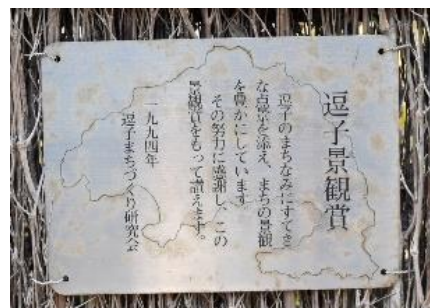 逗子景観賞
逗子のまちなみにすてき
な点景を添え、まちの景観
を豊かにしています
その努力に感謝し、この
景観賞をもって讃えます。
一九九四年
逗子まちづくり研究会